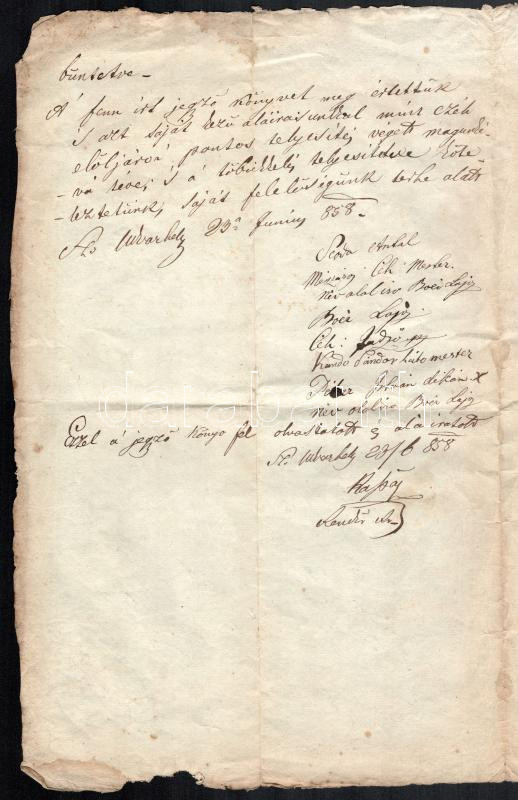 büntetve –
A fenn irt jegző könyvet meg értettük
s azt saját kezű aláirásunkkal mint czéh
elöljárói, pontos telyesitése végett magunké-
vá téve, s a többükkeli telyesitésre köte-
leztetünk, saját felelőségünk terhe alatt
Sz. Udvarhely 23ª Junius 858 –
Antal
Mészáros Czh Mester.
név aláiró Boér Lajos
Boér Lajos
Czh:
Kandó Sándor látómester
István dékán X
név aláiró Boér Lajos
Ezzel á jegző Könyv fel olvastatott s alá iratott
Sz. Udvarhely 23/6 858
darabanth